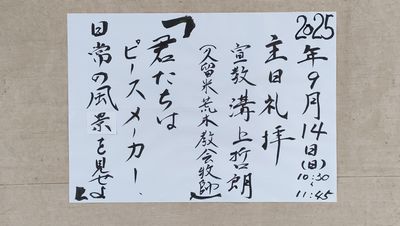 2025年9月14日(日)
10:30
~
11:45
主日礼拝
宣教 溝上哲朗
(久留米荒木教会牧師)
「君たちは
ピースメーカー、
日常の風景を見せよ」